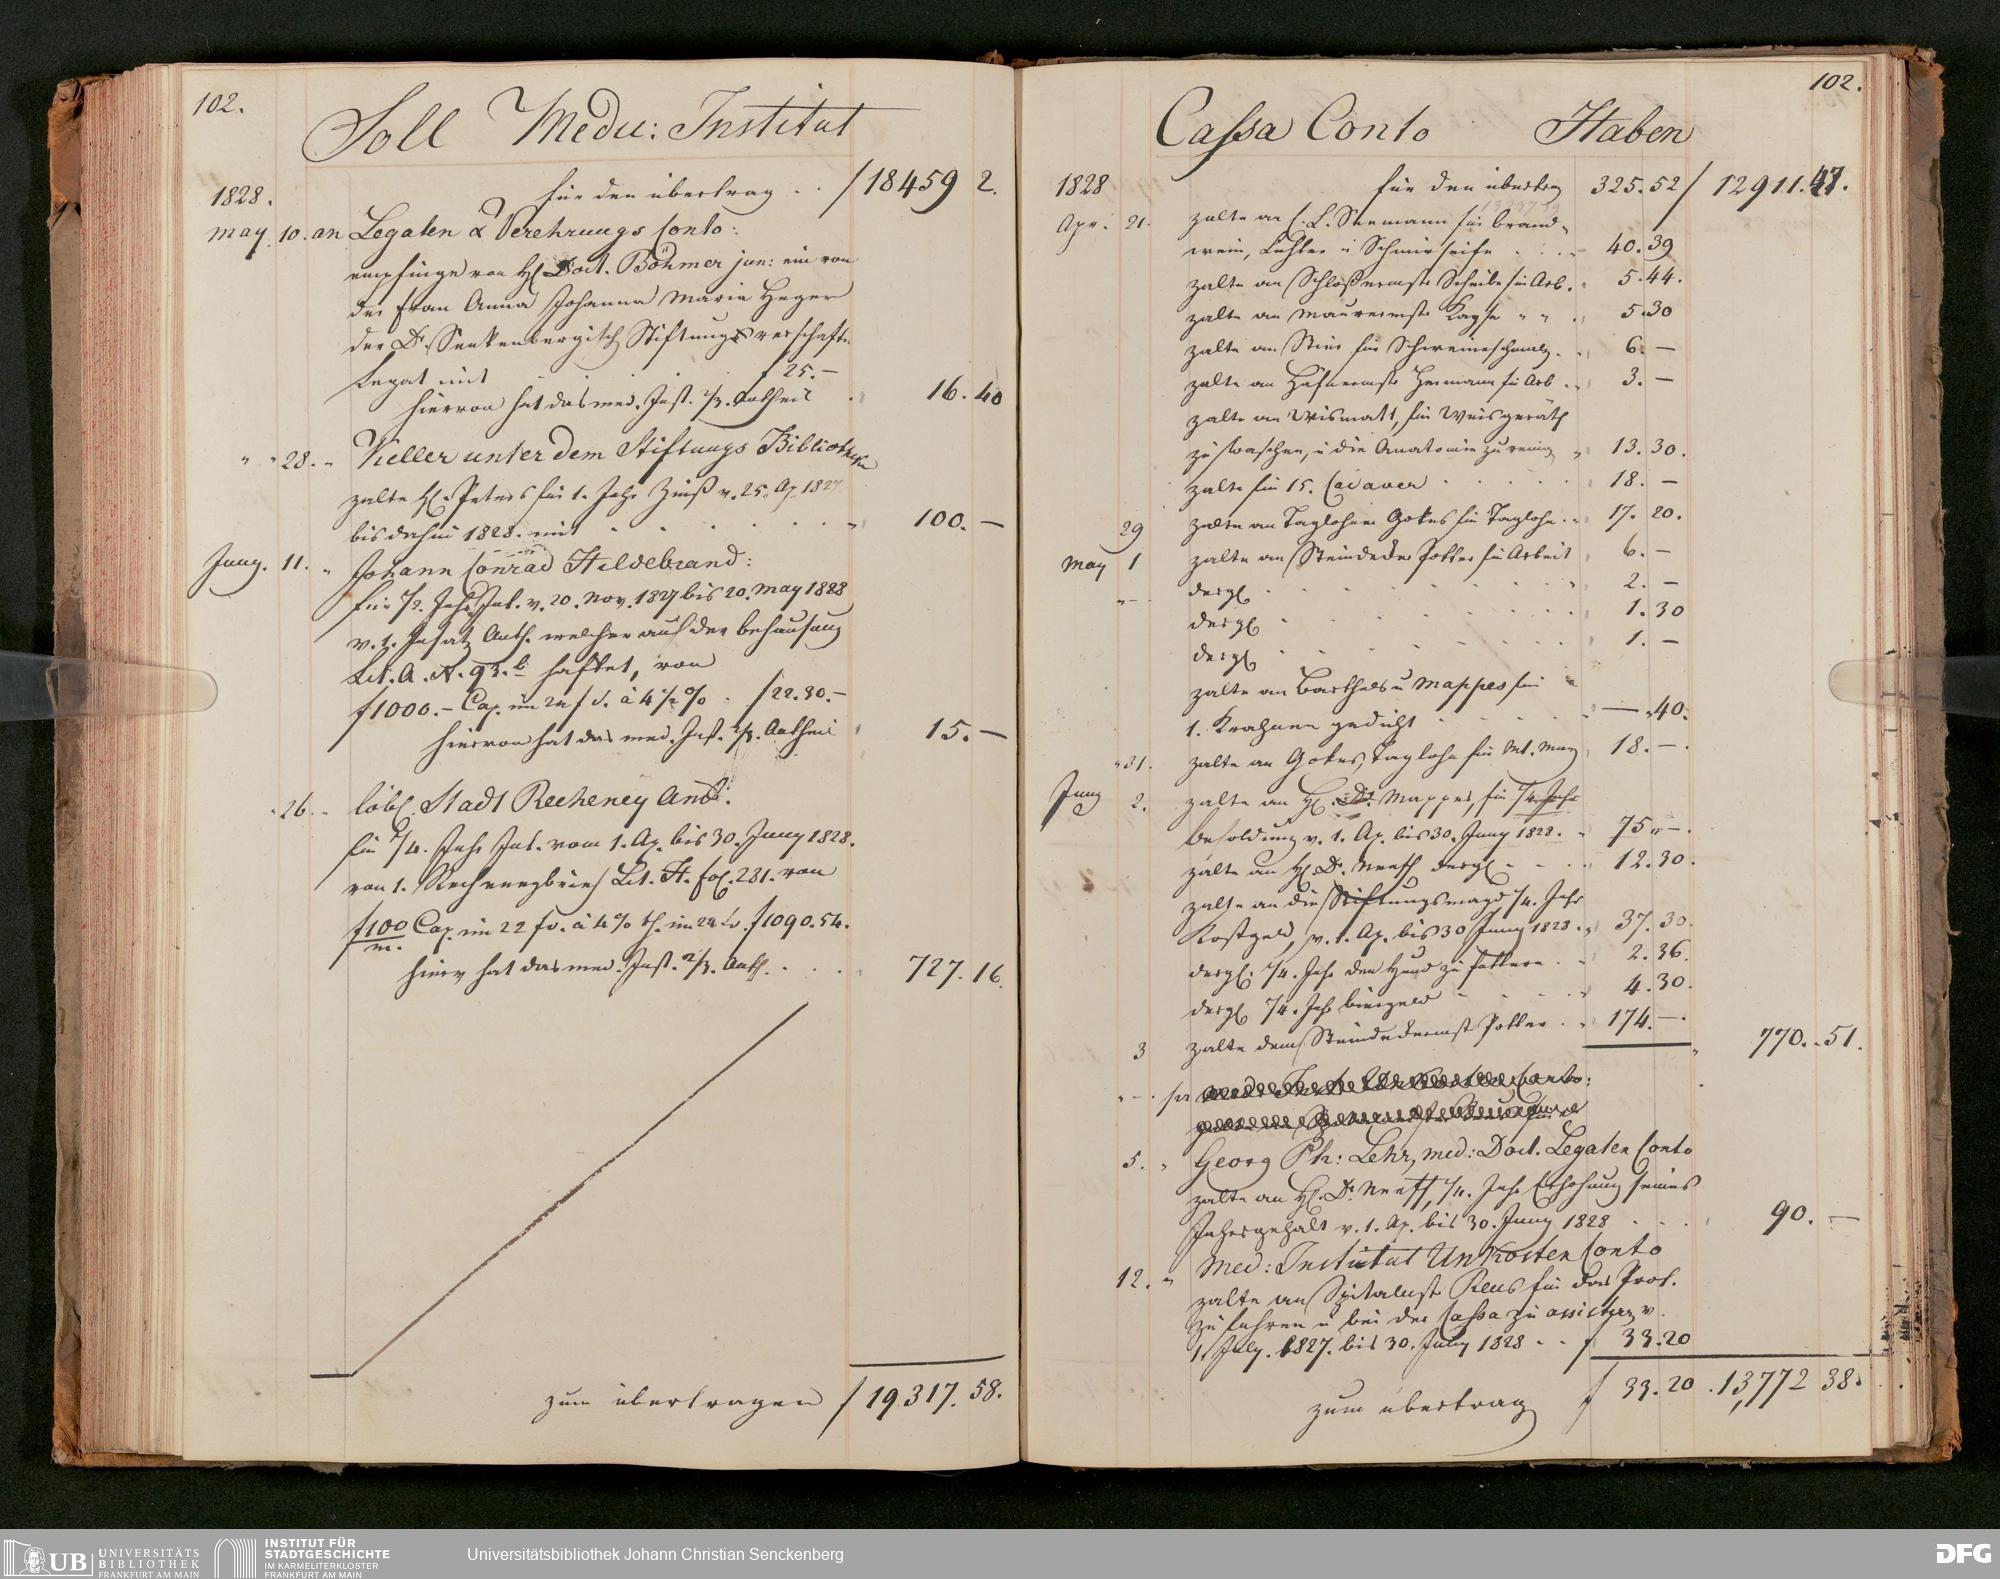 102.
Soll Medic: Institut
1828. für den übertrag . . f 18459 2.
may. 10. an Legaten & Verehrungs Conto:
empfinge von H. Doct. Böhmer jun: ein von
der Frau Anna Johanna Maria Heger
der Dr. Senkenbergisch Stiftung verschafte
Legat mit f 25.—
hiervon hat das med. Inst. 2/3. Antheil 16. 40
" " 28. " Keller unter dem Stiftungs Bibliothek
zalte H. Peters für 1. Jahr Zinß v. 25. Ap. 1827
bis dahin 1828. mit 100. —
Juny. 11. " Johann Conrad Hildebrand:
für 1/2. Jahr Int. v. 20. Nov. 1827 bis 20. May 1828
v. 1. Insatz Anth. welcher auf der behausung
Lit. A. N. 93. b haftet, von
f 1000.— Cap. im 24 f à 4 1/2 % . f 22.30.—
hiervon hat das med. Inst. 2/3. Antheil 15. —
" 26. " löbl. Stadt Recheney Amt.
für 1/4. Jahr Int. vom 1. Ap. bis 30. Juny 1828.
von 1. Rechneybrief Lit. H. fol. 231. von
f 100/m. Cap. im 22 f. à 4 % th. im 24 f. f 1090. 54.
hierv hat das med. Inst. 2/3. Anth. 727. 16.
zum übertragen f 19317. 58.
102.
Cassa Conto Haben
1828 für den übertrag 325. 52 f 12911. 47.
Apr. 21. zalte an C. L. Seemann für brand-
wein, Lichter u Schmirseife 40. 39
zalte an Schloßermstr Scheibe für Arb. 5. 44.
zalte an Maurermstr Kayser " " 5. 30
zalte an für Schweineschmalz 6. —
zalte an Häfnermstr Hermann für Arb 3. —
zalte an Wismatt, für Weisgeräth
zu waschen, u die Anatomie zu reinig 13. 30.
zalte für 15. Cadaver 18. —
29 zalte an Taglohner Gokes für Taglohn 17. 20.
May 1 zalte an Steindecker Potter für Arbeit 6. —
"— dergl 2. —
dergl 1. 30
dergl 1. —
zalte an Barthels u Mappes für
1. Krahnen gedicht — . 40.
" 31. zalte an Gokes, Taglohn für Mt. May 18. — .
Juny 2. zalte an H. Dr. Mappes, für 1/4. Jahr
besoldung v. 1. Ap. bis 30. Juny 1828. 75. —.
zalte an H. Dr. Neeff dergl 12. 30.
zalte an die Stiftungsmagd 1/4. Jahr
Kostgeld, v. 1. Ap. bis 30 Juny 1828. 37. 30.
dergl. 1/4. Jahr den Hund zu füttern 2. 36.
dergl 1/4. Jahr biergeld 4. 30.
3 zalte dem Steindeckermstr Potter 174. — . 770. 51.
"—. per
5. " Georg Ph: Lehr, med: Doct. Legaten Conto
zalte an H. Dr. Neeff, 1/4. Jahr Erhohung seines
Jahrsgehalt v. 1. Ap. bis 30. Juny 1828 90. —
12. " Med: Institut Unkosten Conto
zalte an Spitalmstr Reus für das Prot.
zu führen u bei der Cassa zu v.
1. July. 1827. bis 30. Juny 1828 . . f 33. 20
zum übertrag f 33. 20 . 13,772 38.
UB UNIVERSITÄTS
BIBLIOTHEK
FRANKFURT AM MAIN
INSTITUT FÜR
STADTGESCHICHTE
IM KARMELITERKLOSTER
FRANKFURT AM MAIN
Universitätsbibliothek Johann Christian Senckenberg
DFG